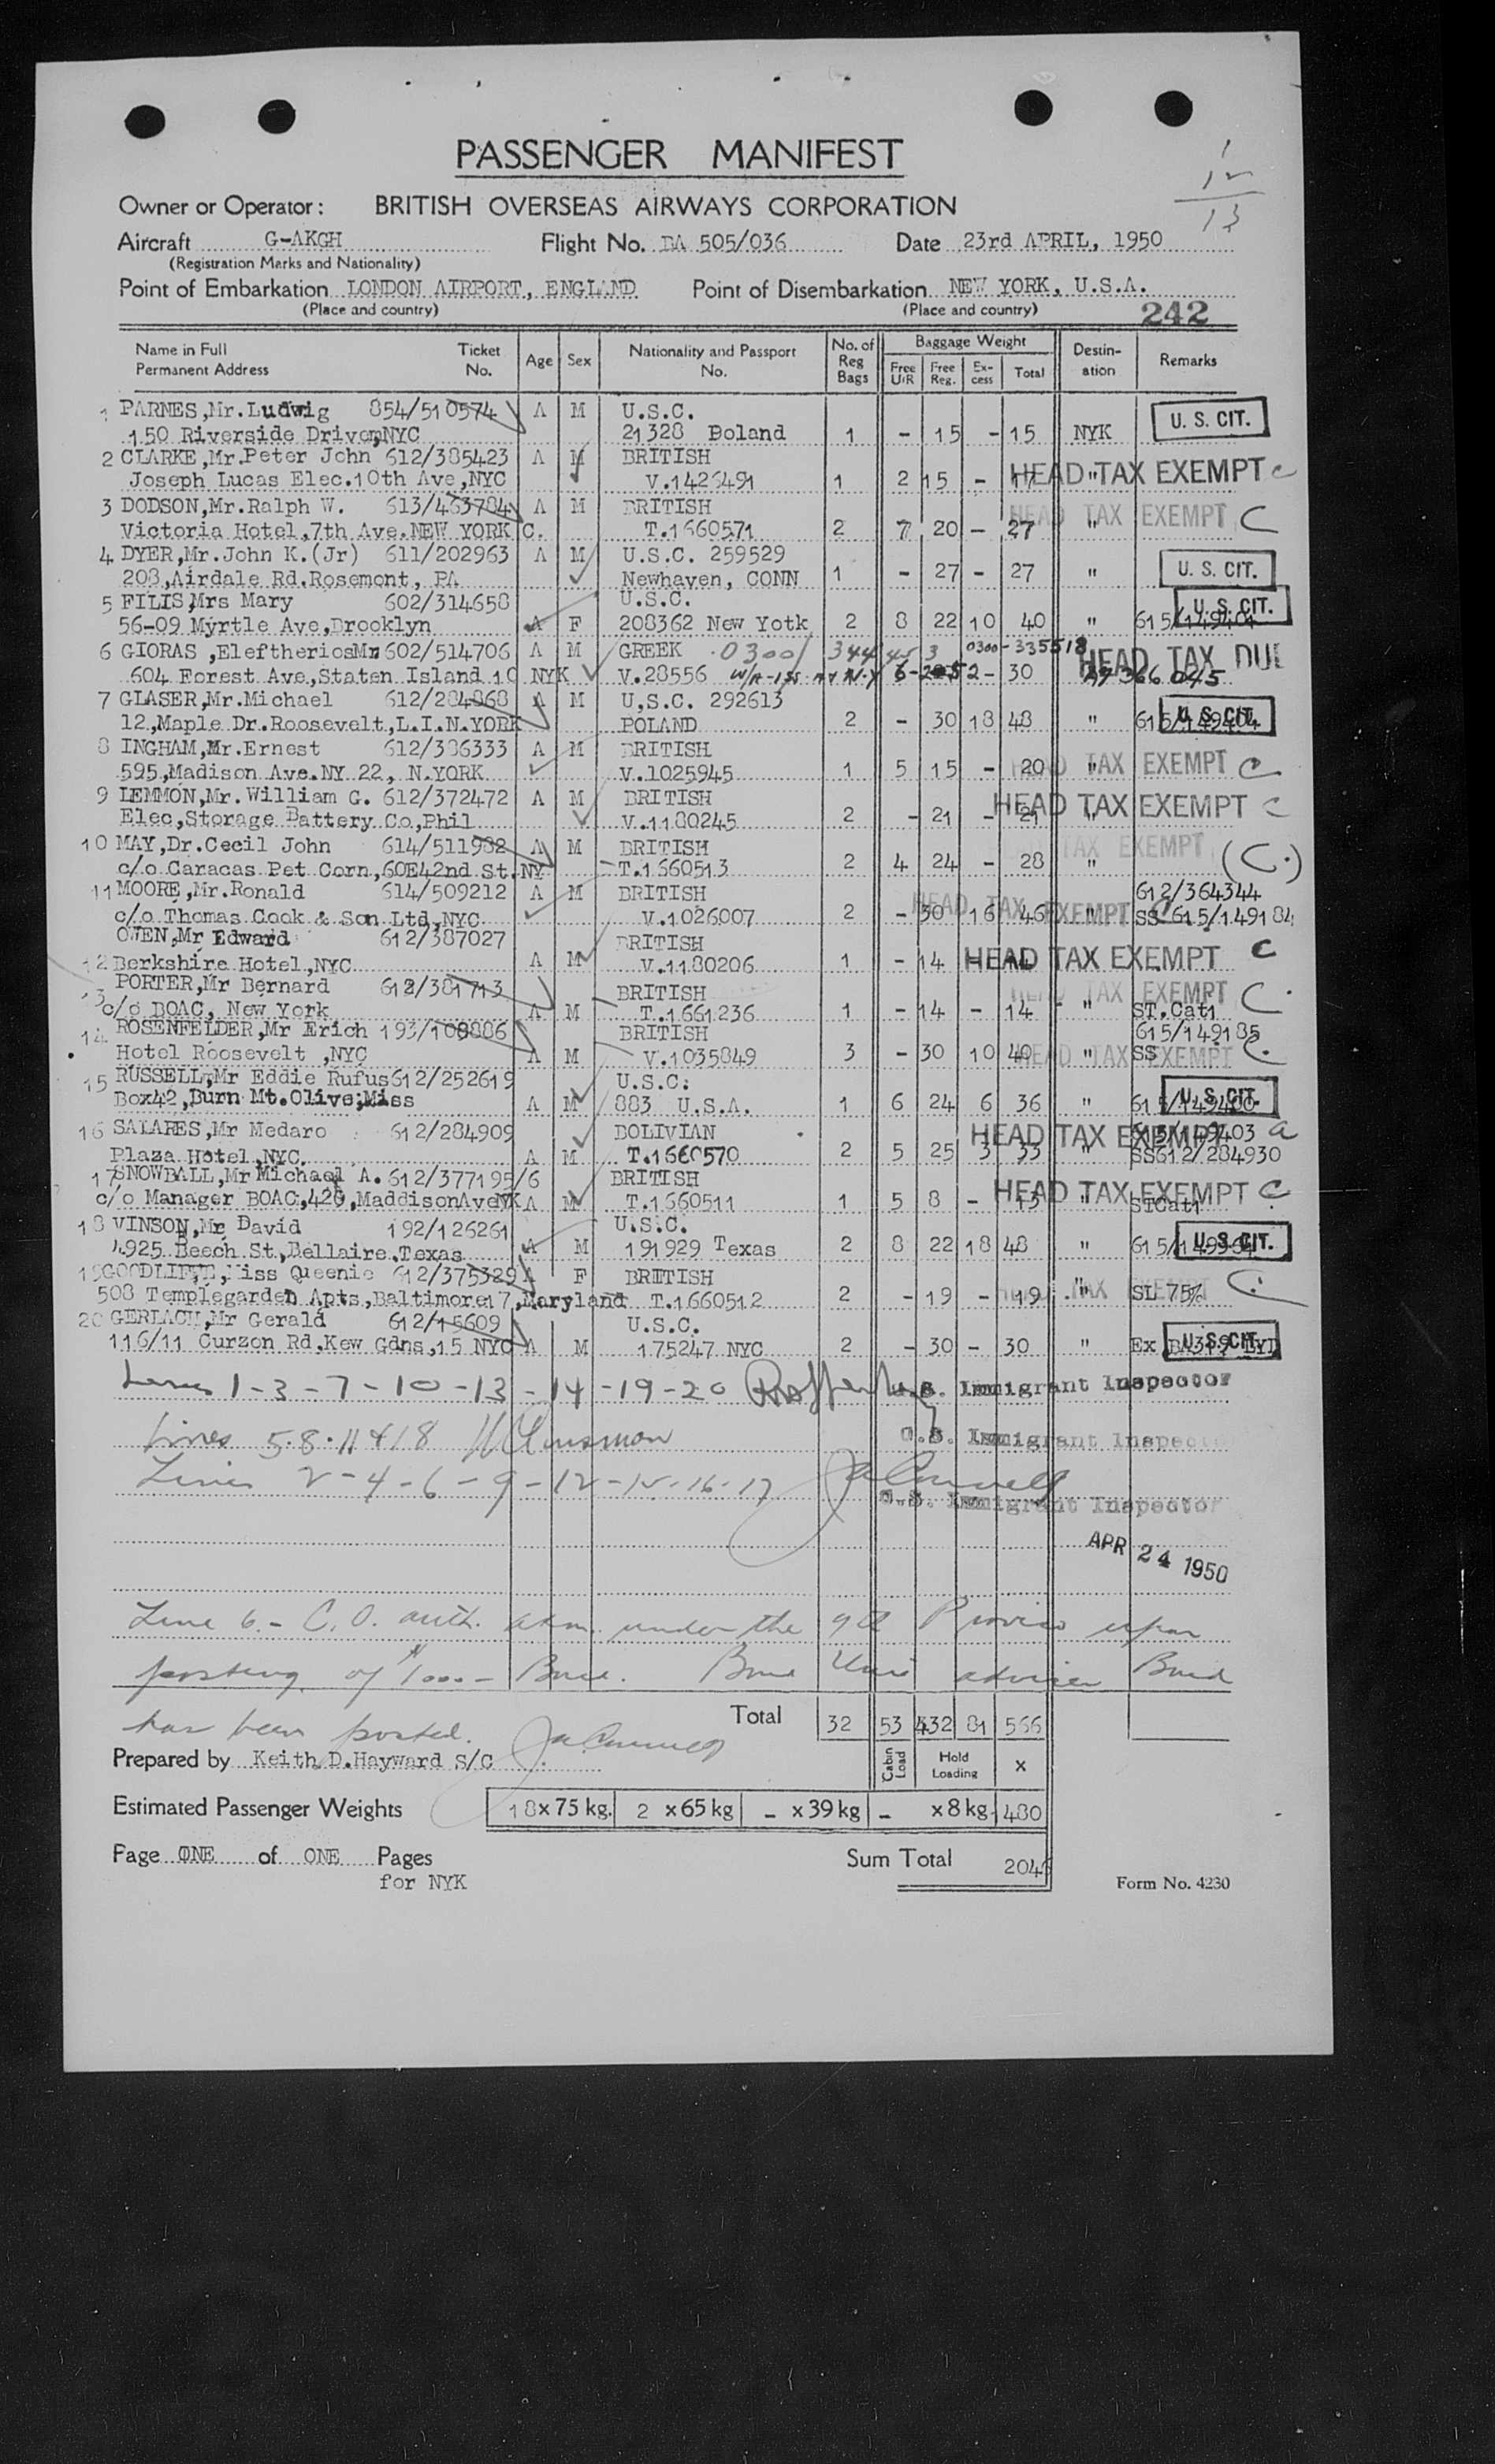 1
12
13
PASSENGER MANIFEST
Owner or Operator: BRITISH OVERSEAS AIRWAYS CORPORATION
Aircraft G-AKGH Flight No. BA 505/036 Date 23rd APRIL, 1950
(Registration Marks and Nationality)
Point of Embarkation LONDON AIRPORT, ENGLAND Point of Disembarkation NEW YORK, U.S.A.
(Place and country) (Place and country) 242
Name in Full Permanent Address Ticket No. Age Sex Nationality and Passport No. No. of Reg Bags Baggage Weight Free U/R Free Reg. Ex-cess Total Destin-ation Remarks
1 PARNES,Mr.Ludwig 854/510574 A M U.S.C. U. S. CIT.
150 Riverside Drive,NYC 21328 Poland 1 - 15 - 15 NYK
2 CLARKE,Mr.Peter John 612/385423 A M BRITISH
Joseph Lucas Elec.10th Ave,NYC V.1426491 1 2 15 - 17 " HEAD TAX EXEMPT C
3 DODSON,Mr.Ralph W. 613/463784 A M BRITISH HEAD TAX EXEMPT C
Victoria Hotel,7th Ave.NEW YORK C. T.1660571 2 7 20 - 27 "
4 DYER,Mr.John K.(Jr) 611/202963 A M U.S.C. 259529
208,Airdale Rd.Rosemont, PA Newhaven, CONN 1 - 27 - 27 " U. S. CIT.
5 FILIS,Mrs Mary 602/314658 U.S.C. U. S. CIT.
56-09 Myrtle Ave,Brooklyn A F 208362 New Yotk 2 8 22 10 40 " 615/149401
6 GIORAS ,EleftheriosMr 602/514706 A M GREEK 0300/ 344 45 3 0300-335518 HEAD TAX DUE
604 Forest Ave,Staten Island 10 NYK V.28556 - 30
7 GLASER,Mr.Michael 612/284868 A M U,S.C. 292613
12,Maple Dr.Roosevelt,L.I.N.YORK POLAND 2 - 30 18 48 " 615/149404 U. S. CIT.
8 INGHAM,Mr.Ernest 612/386333 A M BRITISH
595,Madison Ave.NY 22, N.YORK V.1025945 1 5 15 - 20 " HEAD TAX EXEMPT C
9 LEMMON,Mr.William G. 612/372472 A M BRITISH
Elec,Storage Battery Co,Phil V.1180245 2 - 21 - 21 " HEAD TAX EXEMPT C
10 MAY,Dr.Cecil John 614/511982 A M BRITISH HEAD TAX EXEMPT (C.)
c/o Caracas Pet Corn,60E42nd St.NY T.1660513 2 4 24 - 28 "
11 MOORE,Mr.Ronald 614/509212 A M BRITISH 612/364344
c/o Thomas Cook & Son Ltd,NYC V.1026007 2 - 30 16 46 " HEAD TAX EXEMPT C SS 615/149184
OWEN,Mr Edward 612/387027 BRITISH
12 Berkshire Hotel,NYC A M V.1180206 1 - 14 HEAD TAX EXEMPT C
PORTER,Mr Bernard 612/381713 BRITISH HEAD TAX EXEMPT C.
13 c/o BOAC, New York A M T.1661236 1 - 14 - 14 " ST.Cat1
14 ROSENFELDER,Mr Erich 193/108886 BRITISH 615/149185
Hotel Roosevelt ,NYC A M V.1035849 3 - 30 10 40 " SS HEAD TAX EXEMPT C.
15 RUSSELL,Mr Eddie Rufus 612/252619 U.S.C.
Box42,Burn Mt.Olive,Miss A M 883 U.S.A. 1 6 24 6 36 " 615/149400 U. S. CIT.
16 SALARES,Mr Medaro 612/284909 BOLIVIAN HEAD TAX EXEMPT
Plaza Hotel,NYC. A M T.1660570 2 5 25 3 33 " SS612/284930
17 SNOWBALL,Mr Michael A. 612/377195/6 BRITISH
c/o Manager BOAC,420,MaddisonAveNYK A M T.1660511 1 5 8 - 13 " HEAD TAX EXEMPT C STCat1
18 VINSON,Mr David 192/126261 U.S.C.
4925 Beech St.,Bellaire.Texas A M 191929 Texas 2 8 22 18 48 " U. S. CIT.
19 GOODLIFFE,Miss Queenie 612/375329 A F BRITISH
508 Templegarden Apts,Baltimore17,Maryland T.1660512 2 - 19 - 19 " TAX EXEMPT C. SL 75%
20 GERLACH,Mr Gerald 612/15609 U.S.C.
116/11 Curzon Rd,Kew Gdns,15 NYC A M 175247 NYC 2 - 30 - 30 " Ex U. S. CIT.
Lines 1-3-7-10-13-14-19-20 U.S. Immigrant Inspector
Lines 5.8.11 & 18 U.S. Immigrant Inspector
Lines 2-4-6-9-12-15-16-17 U.S. Immigrant Inspector
APR 24 1950
Line 6 - C.O. auth. adm. under the 9th Proviso upon
posting of $1000- Bond. Bond Unit advises Bond
has been posted.
Total 32 53 432 81 566
Prepared by Keith D.Hayward S/C Cabin Load Hold Loading X
Estimated Passenger Weights 18 x 75 kg. 2 x 65 kg - x 39 kg - x 8 kg 1480
Page ONE of ONE Pages Sum Total 2046
for NYK Form No. 4230